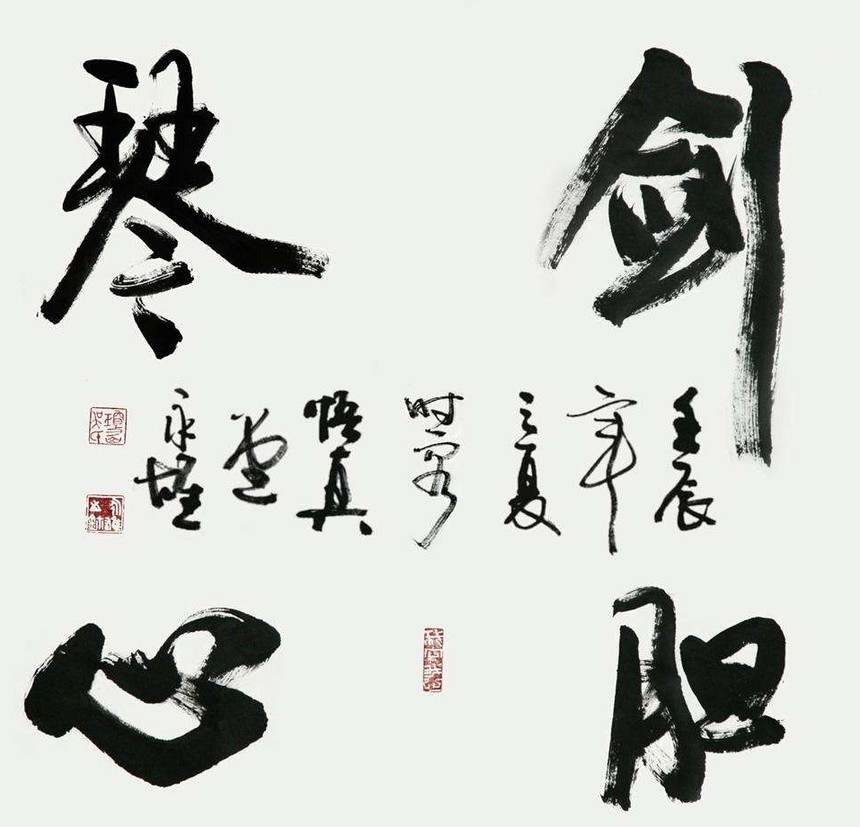 剑胆
琴心
壬辰
年
之夏
时客
悟真
堂
永